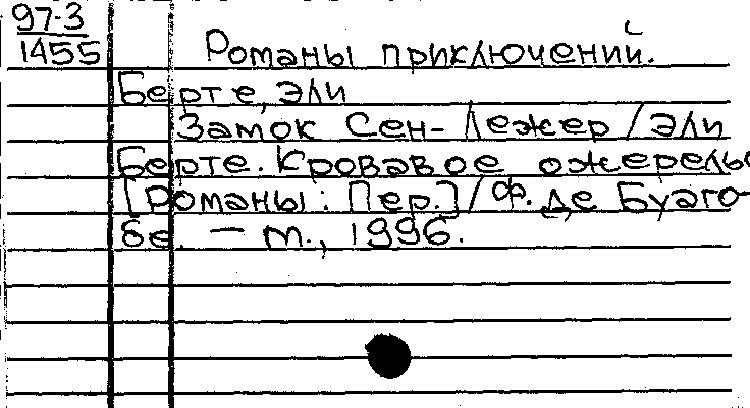 97-3
1455
Романы приключений.
Берте, Эли
Замок Сен-Лежер / Эли
Берте. Кровавое ожерелье
[Романы: Пер.] / Ф. де Буаго-
бе. – М., 1996.